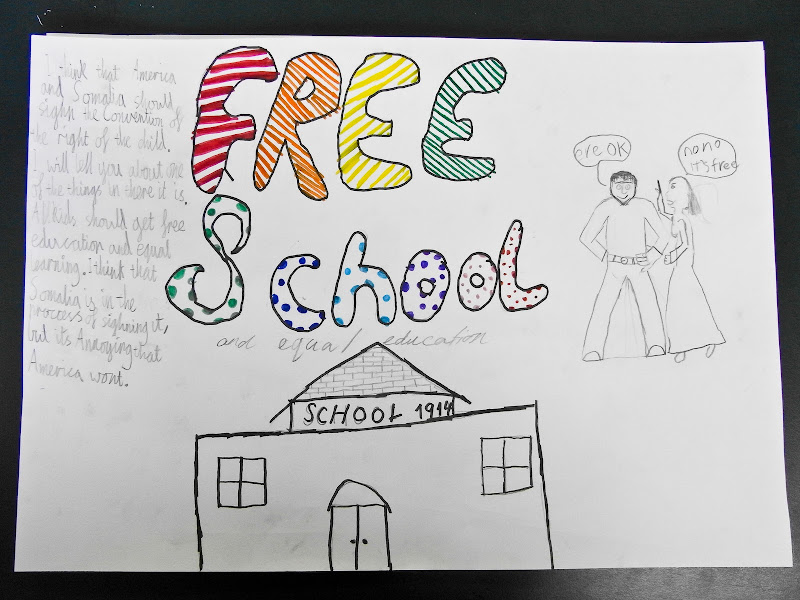 I think that America
and Somalia should
sighn the Convention of
the right of the child.
I will tell you about one
of the things in there it is.
All Kids should get free
education and equal
learning. I think that
Somalia is in the
process of sighning it,
but its Annoying that
America wont.
FREE
School
and equal education
SCHOOL 1914
OK
no no
it's free